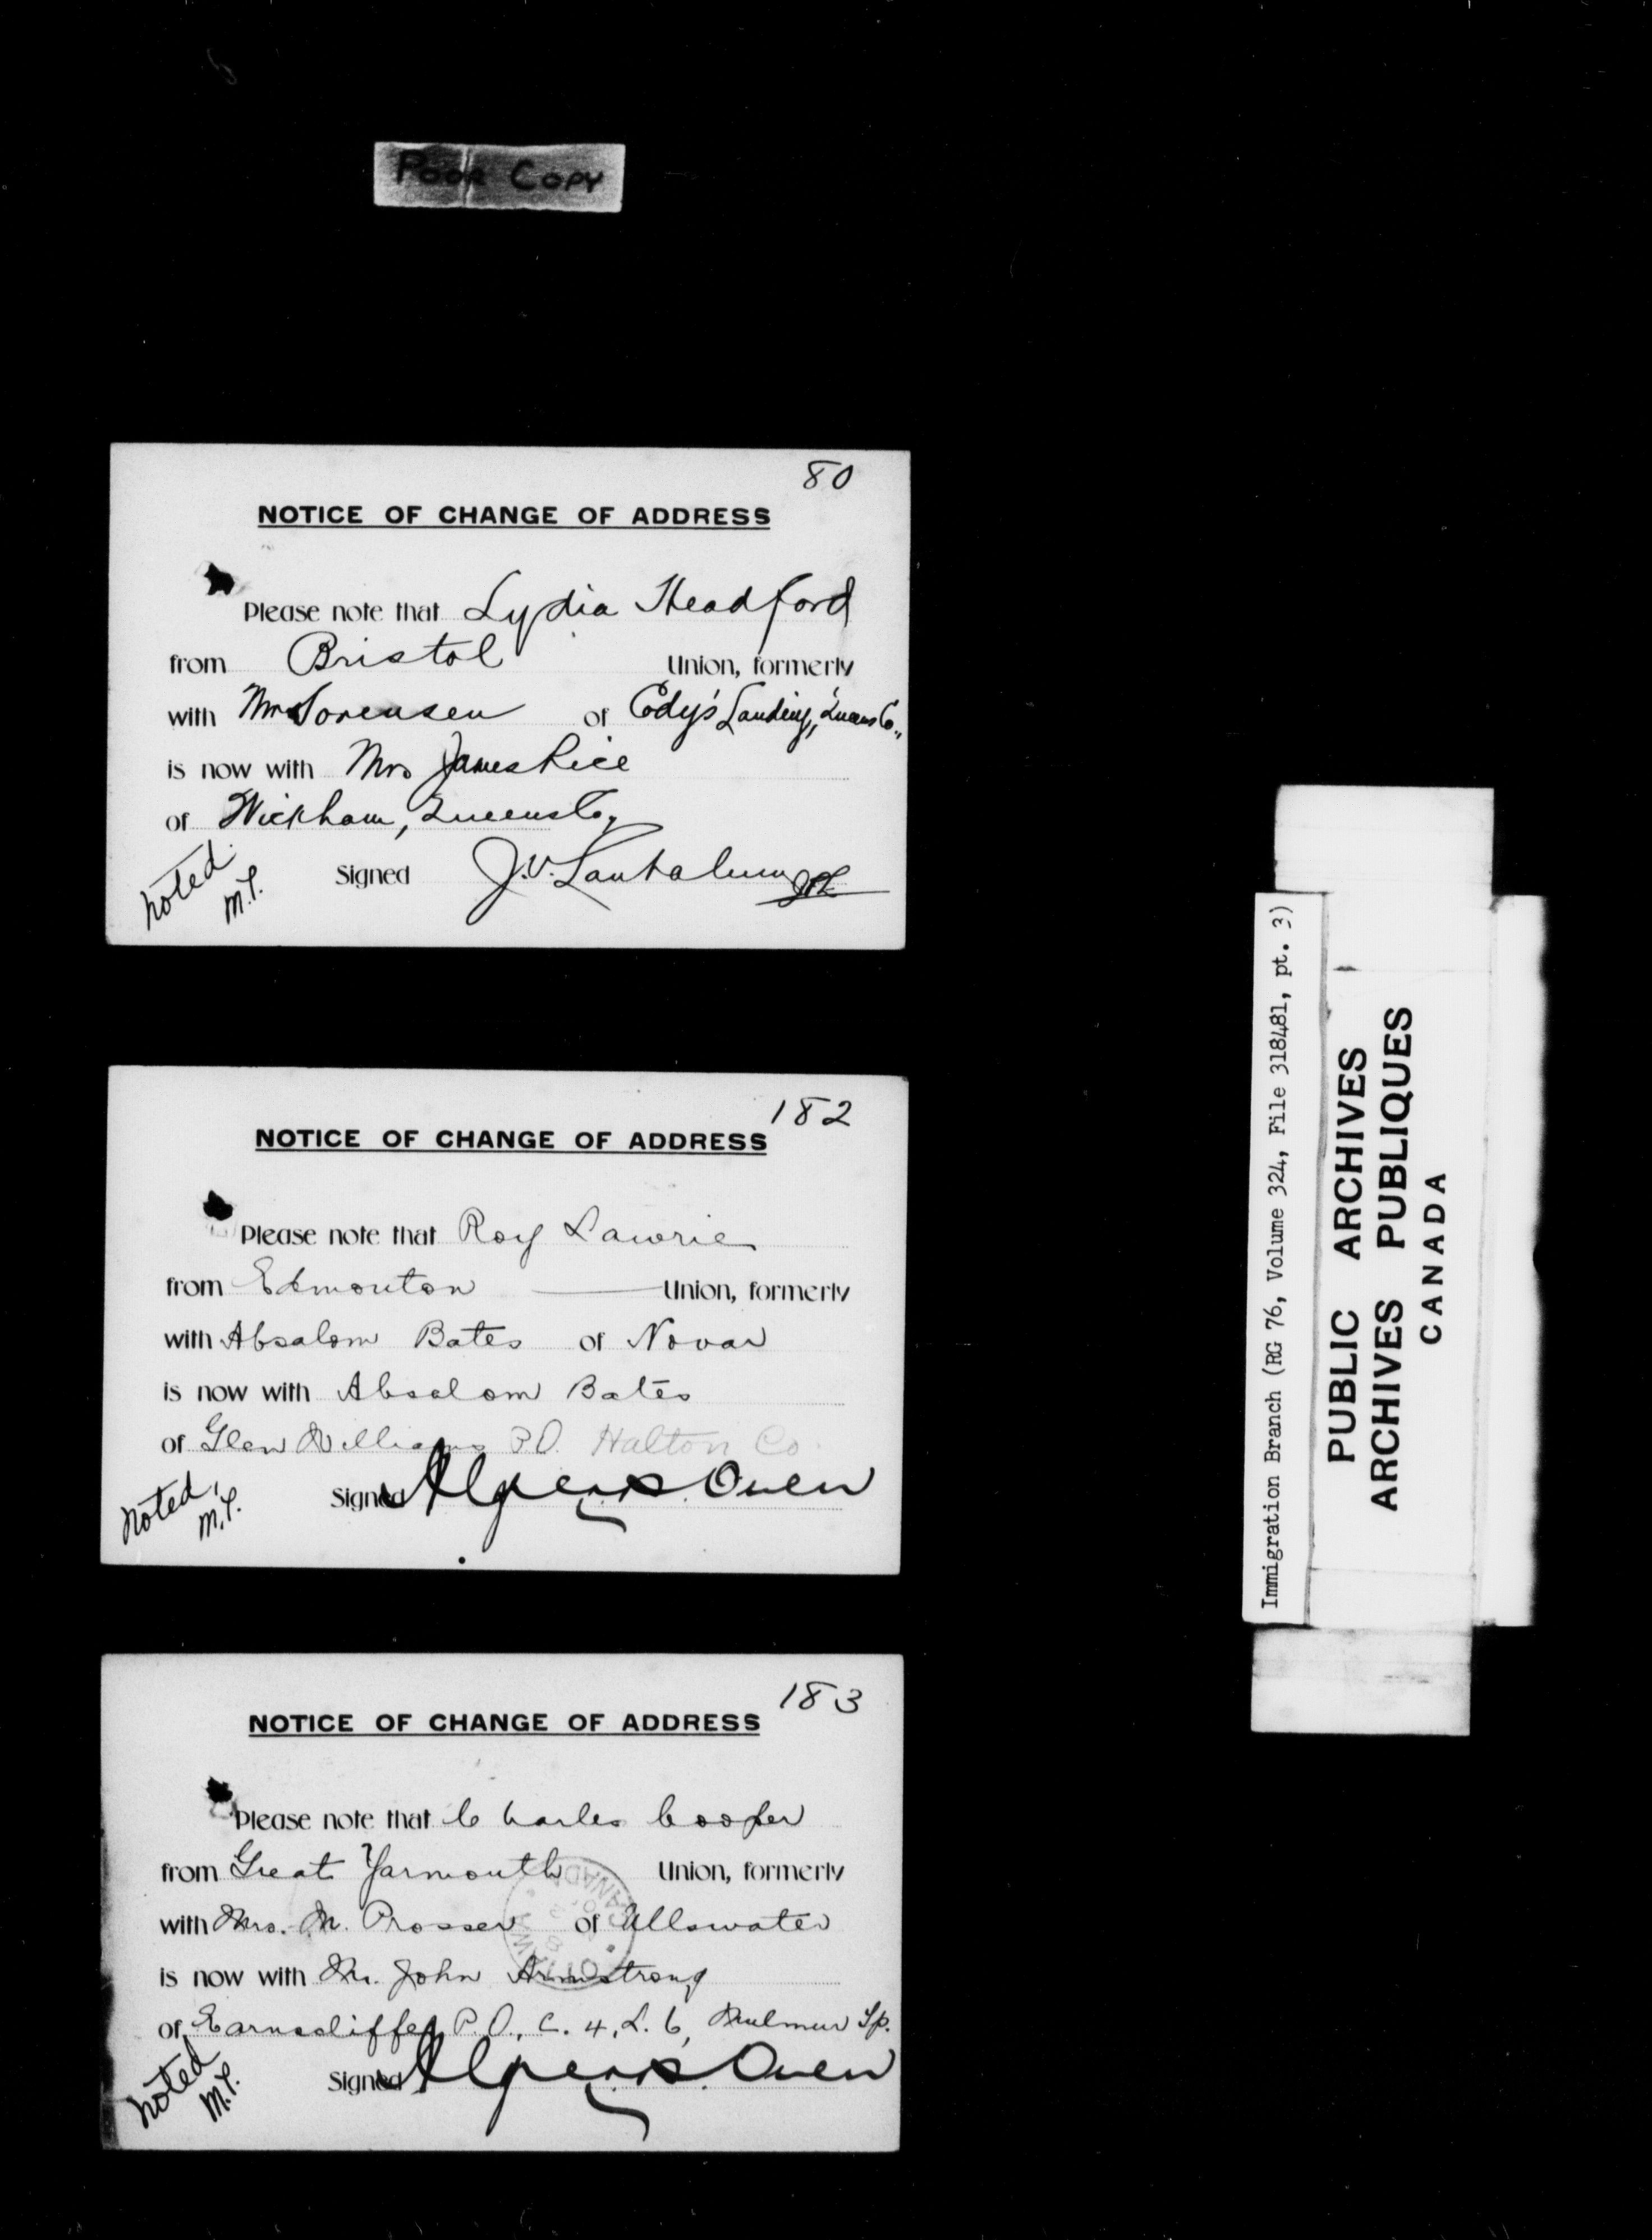 POOR COPY
80
NOTICE OF CHANGE OF ADDRESS
Please note that Lydia Headford
from Bristol Union, formerly
with Mrs Sorensen of Cody's Landing, Queens Co.,
is now with Mrs James Rice
of Wickham, Queens Co,
Signed J.V. Lantalum
Noted. M.T.
182
NOTICE OF CHANGE OF ADDRESS
Please note that Roy Lawrie
from Edmonton Union, formerly
with Absalom Bates of Novar
is now with Absalom Bates
of Glen Williams P.O. Halton Co.
Signed Owen
Noted, M.T.
183
NOTICE OF CHANGE OF ADDRESS
Please note that Charles Cooper
from Great Yarmouth Union, formerly
with Mrs. M. Prosser of Ullswater
is now with Mr. John Armstrong
of Earnscliffe P.O., C. 4, L. 6, Mulmur Tp.
Signed Owen
Noted M.T.
OTTAWA CANADA
Immigration Branch (RG 76, Volume 324, File 318481, pt. 3)
PUBLIC ARCHIVES
ARCHIVES PUBLIQUES
CANADA